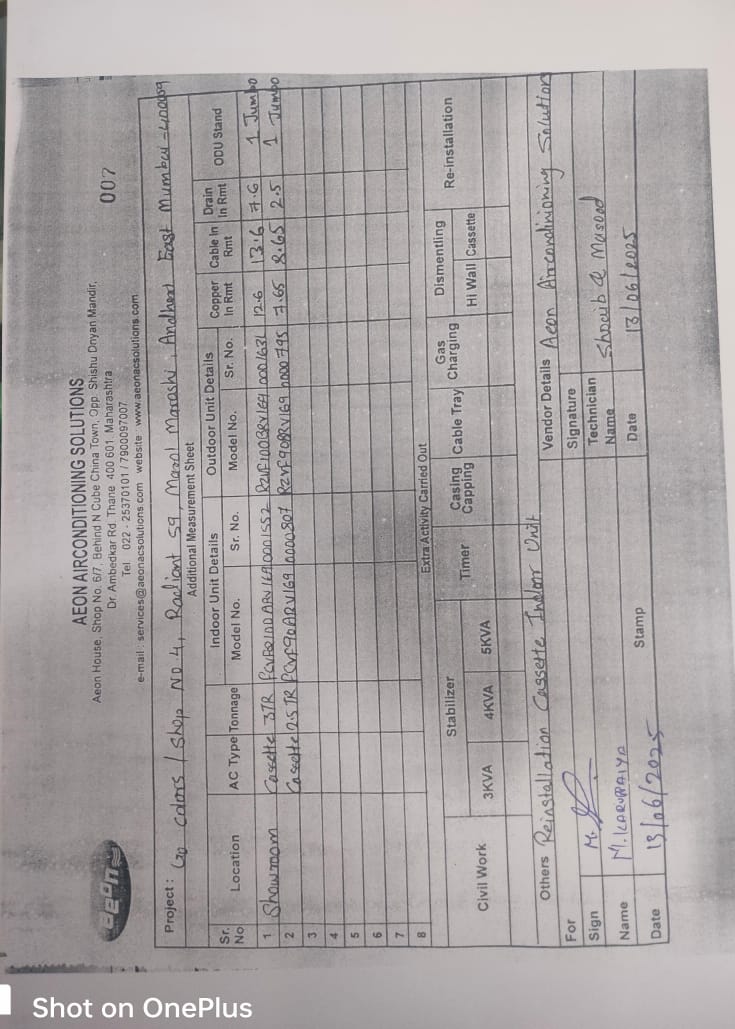 AEON AIRCONDITIONING SOLUTIONS
Aeon House, Shop No. 6/7, Behind N Cube China Town, Opp. Shishu Dnyan Mandir,
Dr. Ambedkar Rd. Thane 400 601. Maharashtra
Tel. 022 - 25370101 / 7900097007
e-mail : services@aeonacsolutions.com website : www.aeonacsolutions.com
aeon
007
Project : Go Colors / Shop No 4, Radiant 59, Marol Marashi, Andheri East Mumbai-400059
Additional Measurement Sheet
Sr. No Location AC Type Tonnage Indoor Unit Details Outdoor Unit Details Copper In Rmt Cable In Rmt Drain In Rmt ODU Stand
Model No. Sr. No. Model No. Sr. No.
1 Showroom Cassette 3TR 0001552 0001631 12.6 13.6 7.6 1 Jumbo
2 Cassette 2.5TR FCVF90ARV169 0000807 RZVF90BRV169 0000795 7.65 8.65 2.5 1 Jumbo
3
4
5
6
7
8
Extra Activity Carried Out
Civil Work Stabilizer Timer Casing Capping Cable Tray Gas Charging Dismentling Re-installation
3KVA 4KVA 5KVA Hi Wall Cassette
Others Reinstallation Cassette Indoor Unit Vendor Details Aeon Aircondinioning Solution
For Signature
Sign M. Technician Name Shoaib & Masood
Name M. KARUPPAIYA Date 13/06/2025
Date 13/06/2025 Stamp
Shot on OnePlus